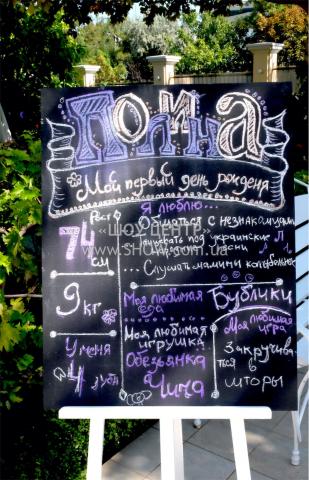 ПОЛИНА
Мой первый день рождения
Рост
74
см
Я люблю...
Общаться с незнакомцами
танцевать под украинские
песни
... Слушать мамины колыбельные
«ШОУ ЦЕНТР»
www.SHOW.com.ua
9 кг
Моя любимая
еда
Бублики
У меня
4 зуба
Моя любимая
игрушка
Обезьянка
Чича
Моя любимая
игра
Закручива-
ться в
шторы